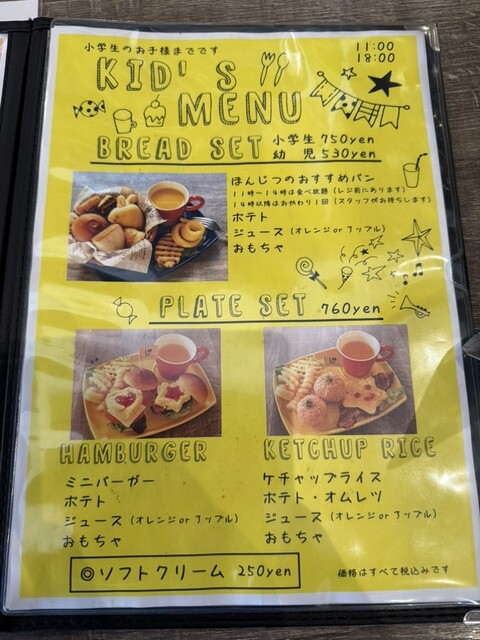 小学生のお子様までです
11:00
18:00
KID'S
MENU
BREAD SET 小学生 750yen
幼 児 530yen
ほんじつのおすすめパン
11時～14時は食べ放題(レジ前にあります)
14時以降はおやわり1回(スタッフがお持ちします)
ポテト
ジュース(オレンジorアップル)
おもちゃ
PLATE SET 760yen
HAMBURGER
ミニバーガー
ポテト
ジュース(オレンジorアップル)
おもちゃ
KETCHUP RICE
ケチャップライス
ポテト・オムレツ
ジュース(オレンジorアップル)
おもちゃ
◎ソフトクリーム 250yen
価格はすべて税込みです